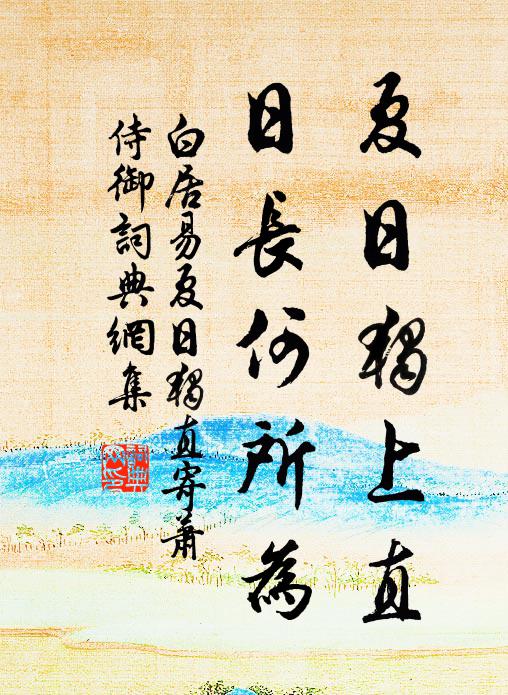 夏日獨上直
日長何所為
白居易夏日獨直寄蕭
侍御詞典網集